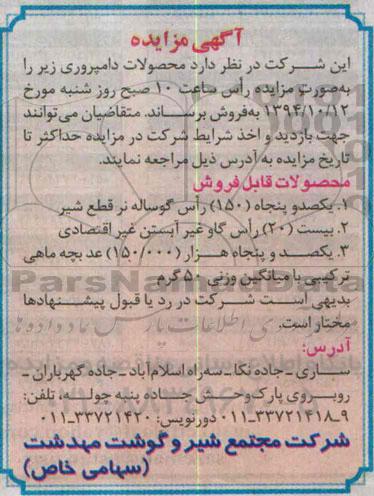 آگهی مزایده
این شرکت در نظر دارد محصولات دامپروری زیر را
به‌صورت مزایده رأس ساعت ۱۰ صبح روز شنبه مورخ
۱۳۹۴/۱۰/۱۲ به‌فروش برساند. متقاضیان می‌توانند
جهت بازدید و اخذ شرایط شرکت در مزایده حداکثر تا
تاریخ مزایده به آدرس ذیل مراجعه نمایند.
محصولات قابل فروش
۱. یکصدو پنجاه (۱۵۰) رأس گوساله نر قطع شیر
۲. بیست (۲۰) رأس گاو غیر آبستن غیر اقتصادی
۳. یکصد و پنجاه هزار (۱۵۰/۰۰۰) عدد بچه ماهی
ترکیبی با میانگین وزنی ۵۰ گرم
بدیهی است شرکت در رد یا قبول پیشنهادها
مختار است.
آدرس:
ساری ـ جاده نکا ـ سه‌راه اسلام‌آباد ـ جاده گهرباران ـ
روبروی پارک‌وحش جاده پنبه چوله، تلفن:
۹ـ۳۳۷۲۱۴۱۸ـ۰۱۱ دورنویس: ۳۳۷۲۱۴۲۰ـ۰۱۱
شرکت مجتمع شیر و گوشت مهدشت
(سهامی خاص)
ParsNamadData